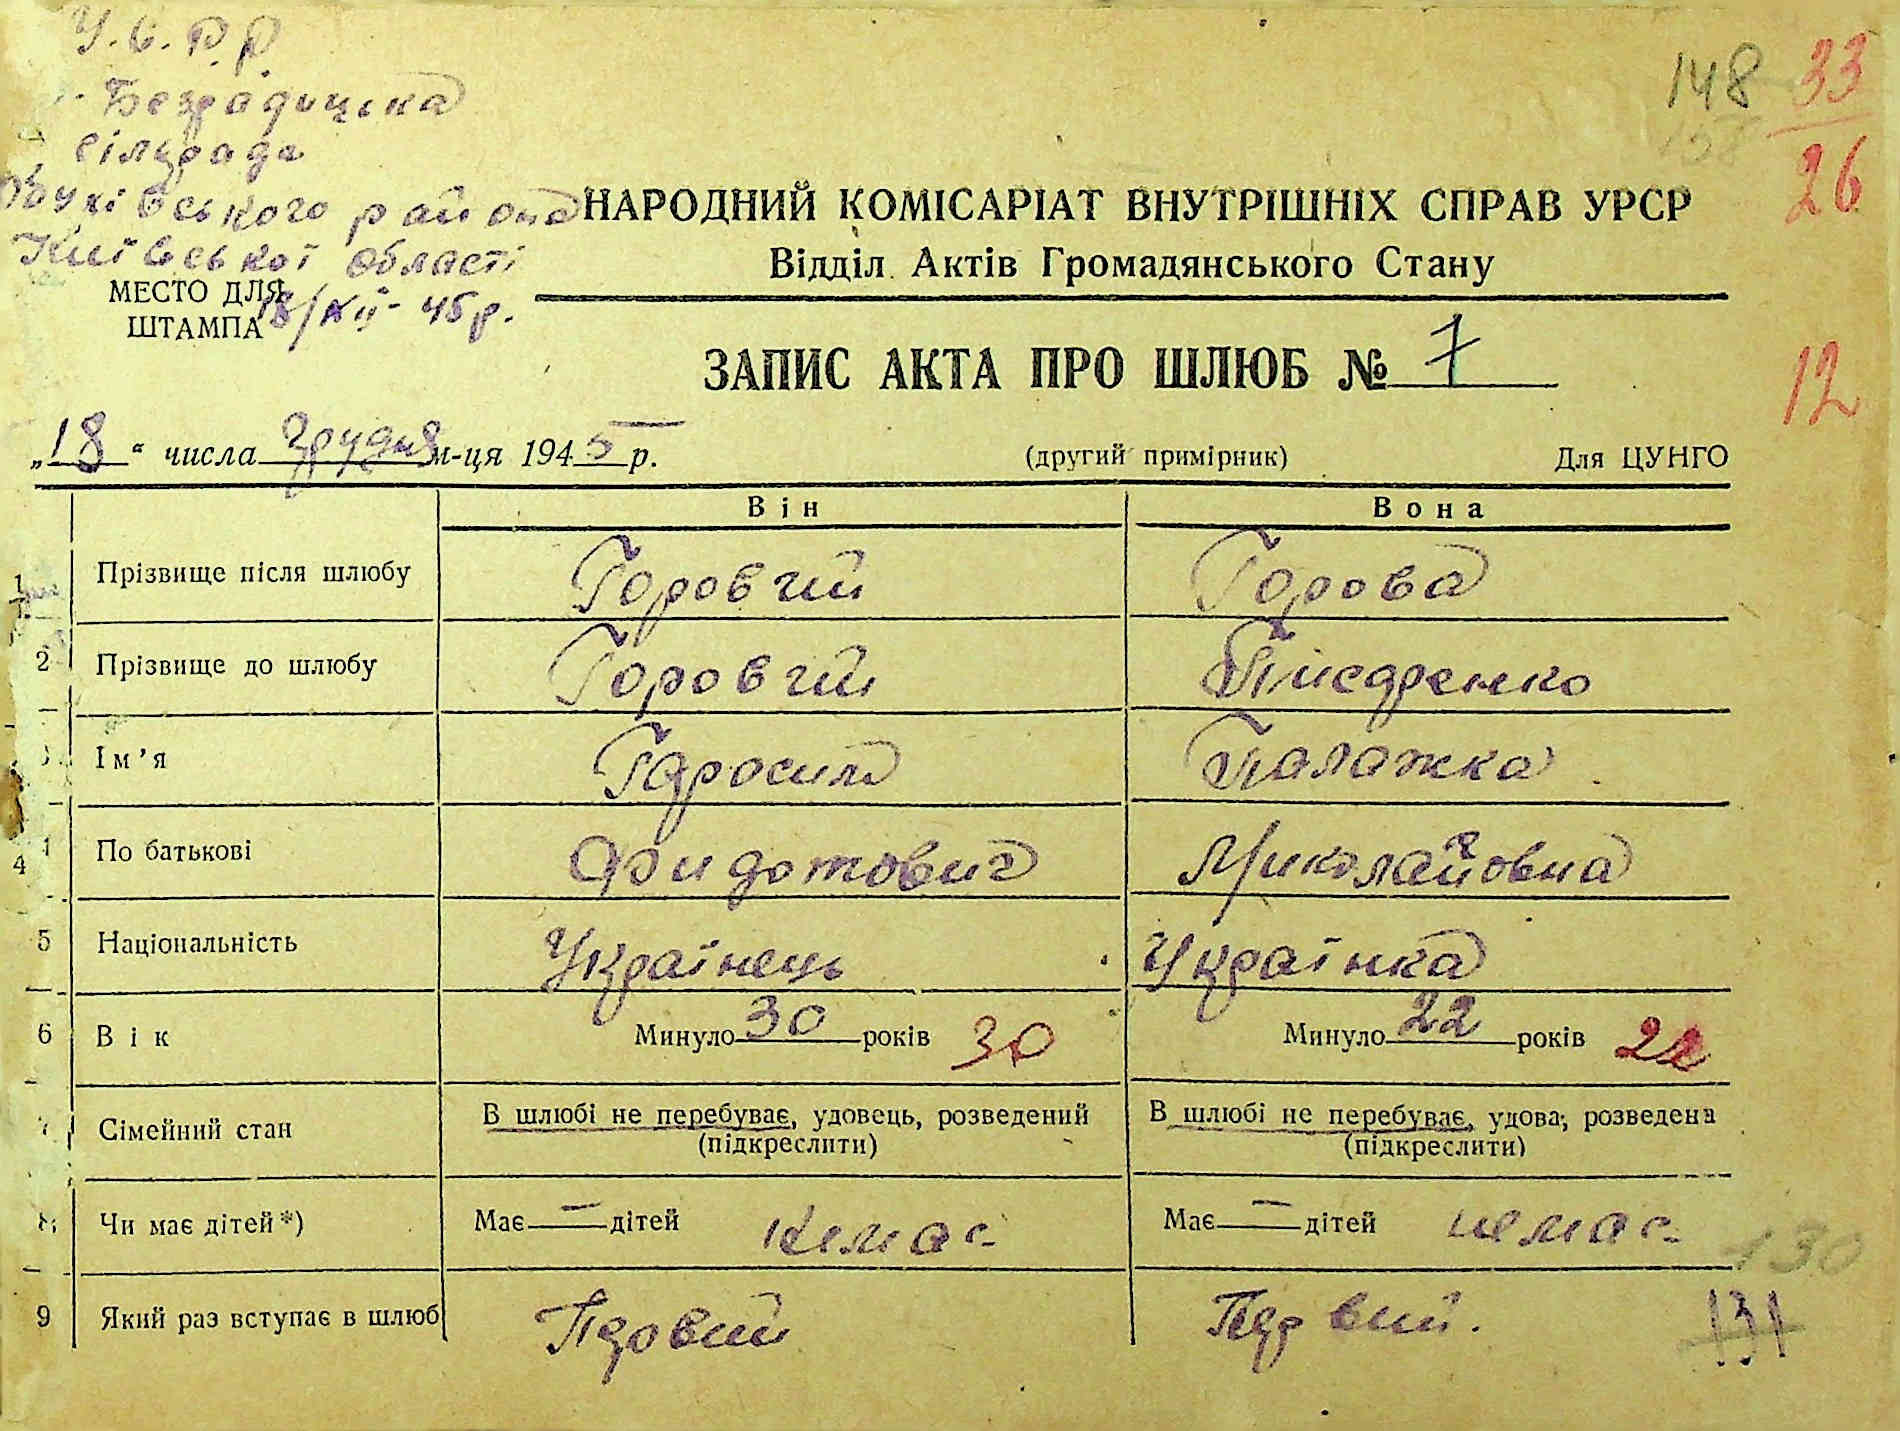 У.С.Р.Р.
Безрадицька
сільрада
Обухівського района
Київської області
18/XII- 45р.
МЕСТО ДЛЯ
ШТАМПА
148 33
158 26
12
НАРОДНИЙ КОМІСАРІАТ ВНУТРІШНІХ СПРАВ УРСР
Відділ Актів Громадянського Стану
ЗАПИС АКТА ПРО ШЛЮБ № 7
„18" числа грудня м-ця 1945 р. (другий примірник) Для ЦУНГО
Він Вона
1 Прізвище після шлюбу Горовий Горова
2 Прізвище до шлюбу Горовий
3 Ім'я Гаросим Палажка
4 По батькові Фидотович Миколайовна
5 Національність Українець Українка
6 Вік Минуло 30 років 30 Минуло 22 років 22
7 Сімейний стан В шлюбі не перебуває, удовець, розведений В шлюбі не перебуває, удова, розведена
(підкреслити) (підкреслити)
8 Чи має дітей*) Має — дітей немає Має — дітей немає
130
9 Який раз вступає в шлюб Первий Первий.
131